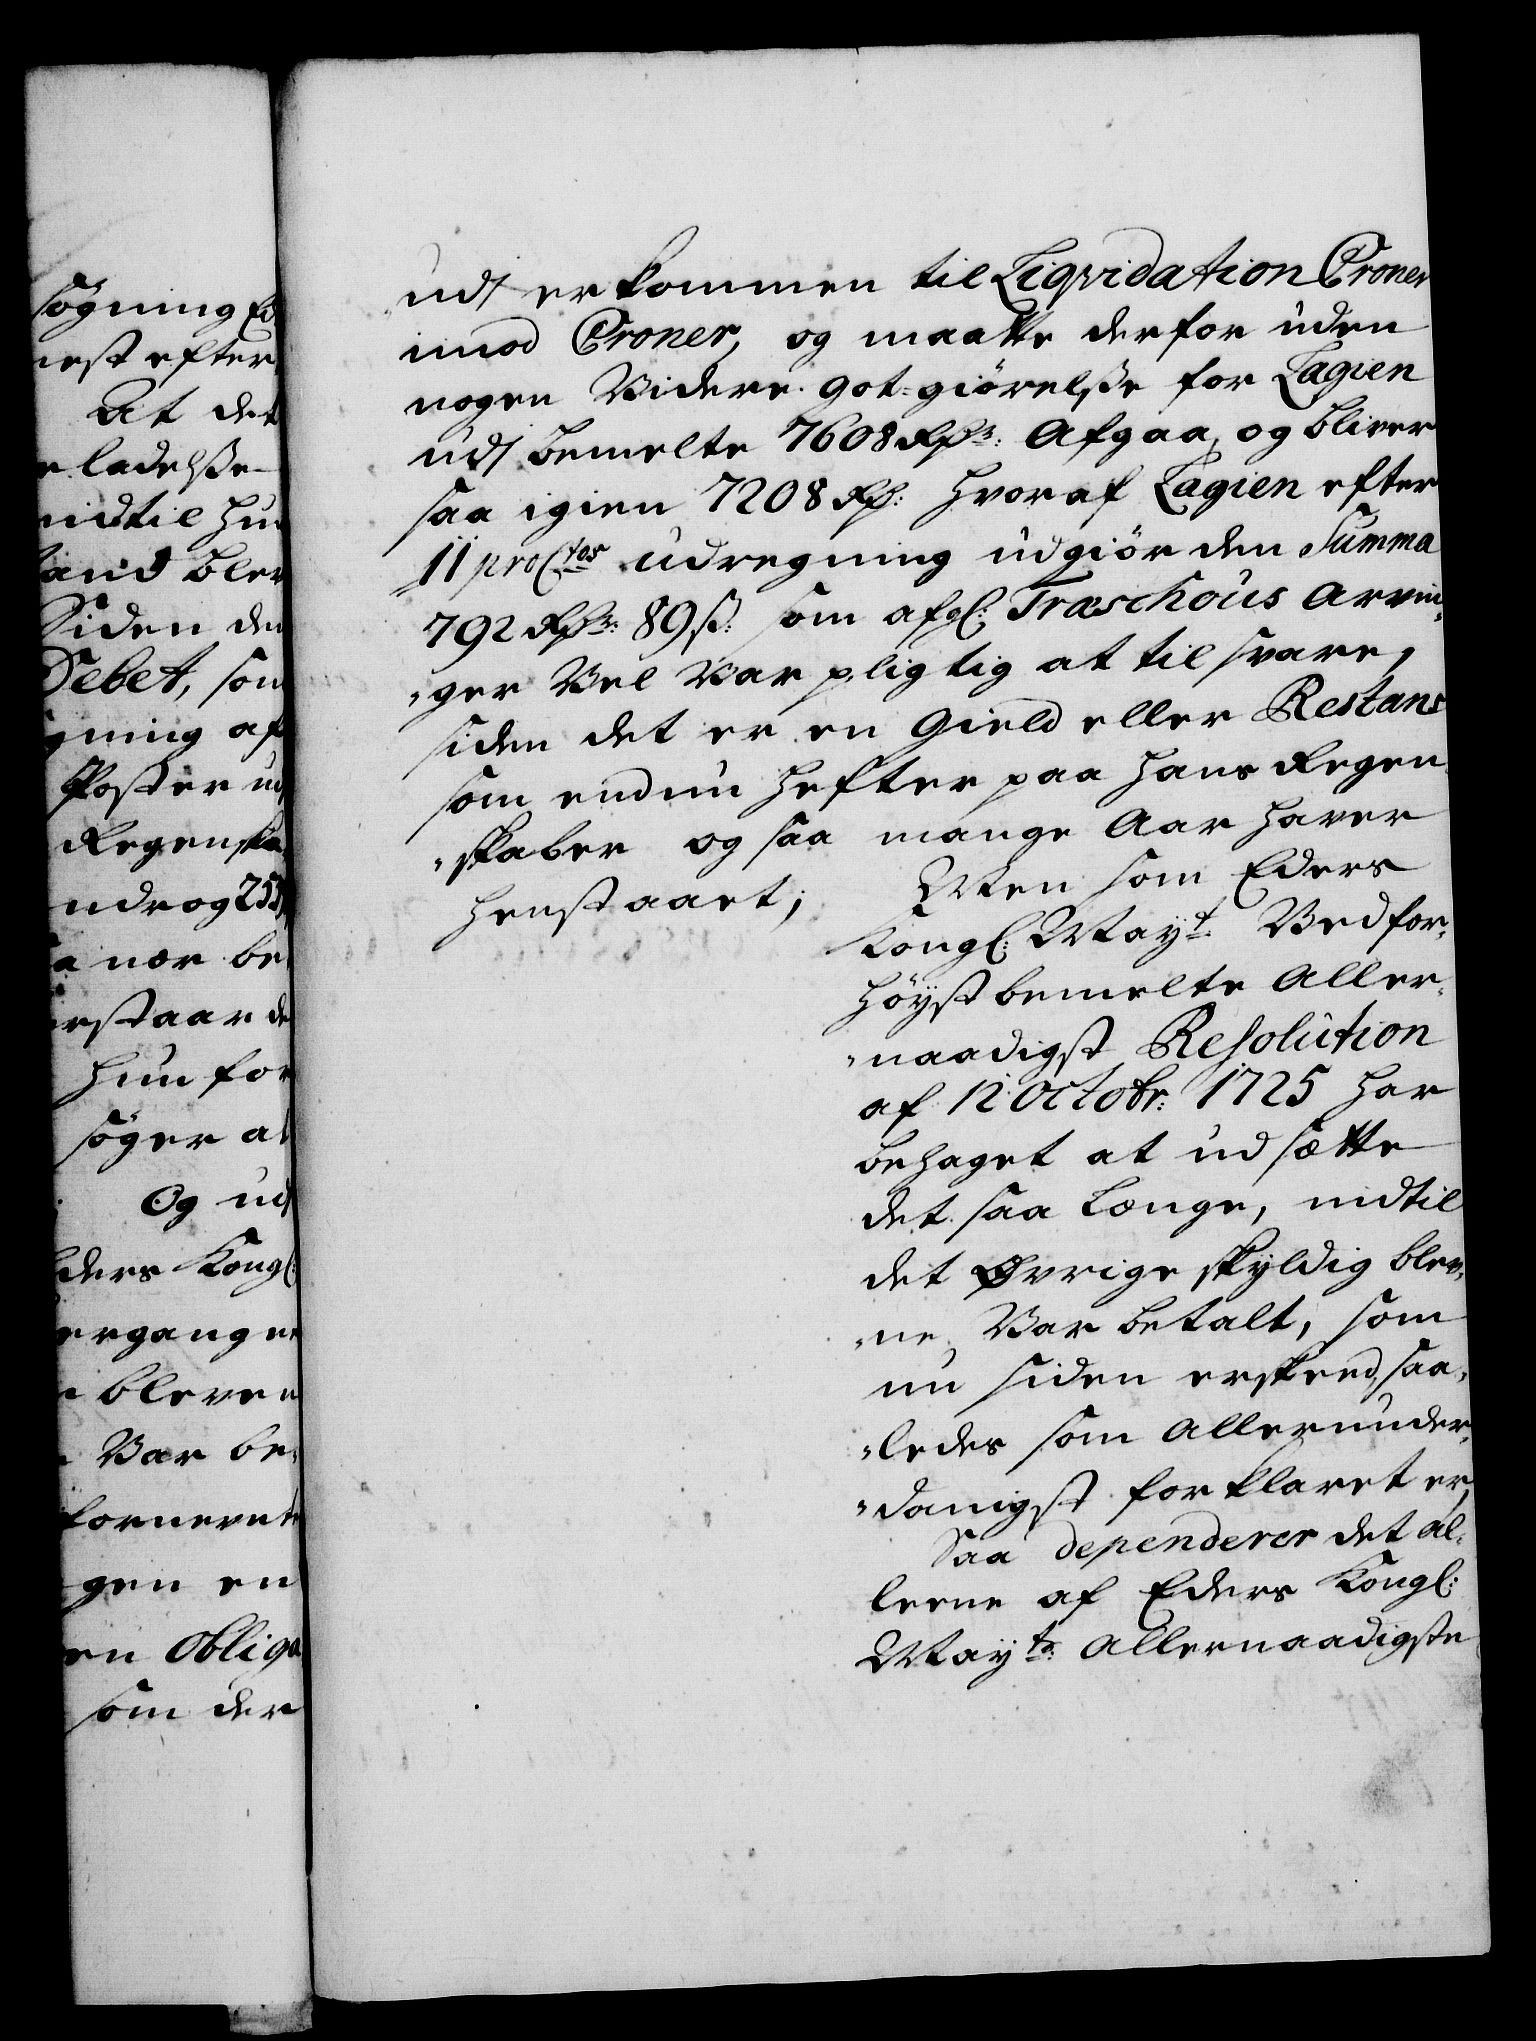 søgning Ed
nest efter
At det
e ladelsse
indtil hun
land blev
Siden den
Debet, som
gning af
Poster ud
Regenska
androg 253
a nær be
erstaar de
hun for
søger at
Og ud
Eders Kongl:
ergangne
bleven
Var be„
fornevnte
gen en
en Obliga
som der
udj er kommen til Liqvidation Croner
imod Croner, og maatte derfor uden
nogen Videre got-giørelsse for Lagien
udj bemelte 7608 Rdr: Afgaa, og bliver
saa igien 7208 Rd: hvoraf Lagien efter
11 pro Ctos udregning udgiør den Summa
792 Rdr: 89 ß: som afgl: Træschous Arvin„
„ger Vel Var pligtig at til svare,
siden det er en Gield eller Restans
som endnu hefter paa hans Regen„
„skaber og saa mange Aar haver
henstaaet;
Men som Eders
Kongl: Mayt: Ved for„
høyst bemelte Aller„
„naadigst Resolution
af 12 Octobr: 1725 har
behaget at udsætte
det saa Længe, indtil
det Øvrige skyldig blev„
„ne Var betalt, som
nu siden er skeed, saa„
„ledes som Allerunder„
„danigst forklaret er,
Saa dependerer det al„
leene af Eders Kongl:
Mayts: Allernaadigste